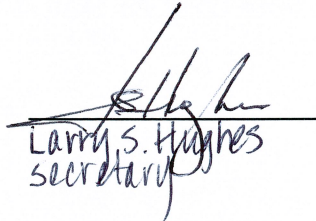 Larry S. Hughes
secretary